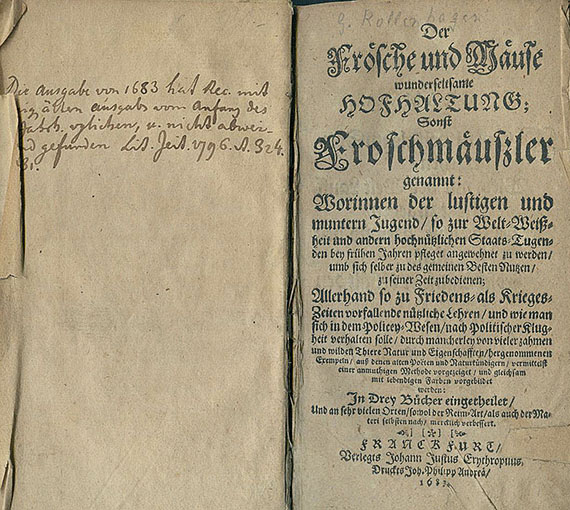 Die Ausgabe von 1683 hat Rec. mit
ältern Ausgabe vom Anfang des
u. nicht abwei-
gefunden Lit. Zeit. 1796. St. 324.
G. Rollenhagen
Der
Frösche und Mäuse
wunderseltsame
HOFHALTUNG;
Sonst
Froschmäuszler
genannt:
Worinnen der lustigen und
muntern Jugend / so zur Welt-Weiß-
heit und andern hochnützlichen Staats-Tugen-
den bey frühen Jahren pfleget angewehnet zu werden /
umb sich selber zu des gemeinen Besten Nutzen /
zu seiner Zeit zubedienen;
Allerhand so zu Friedens- als Krieges-
Zeiten vorfallende nützliche Lehren / und wie man
sich in dem Policey-Wesen / nach Politischer Klug-
heit verhalten solle / durch mancherley von vieler zahmen
und wilden Thiere Natur und Eigenschafften / hergenommenen
Exempeln / aus denen alten Poeten und Naturkündigern / vermittelst
einer anmuthigen Methode vorgezeiget / und gleichsam
mit lebendigen Farben vorgebildet
werden:
In Drey Bücher eingetheilet /
Und an sehr vielen Orten / sowol der Reim-Art / als auch der Ma-
teri selbsten nach / mercklich verbessert.
FRANCKFURT /
Verlegts Johann Justus Erythropilus,
Druckts Joh. Philipp Andreä /
1683.